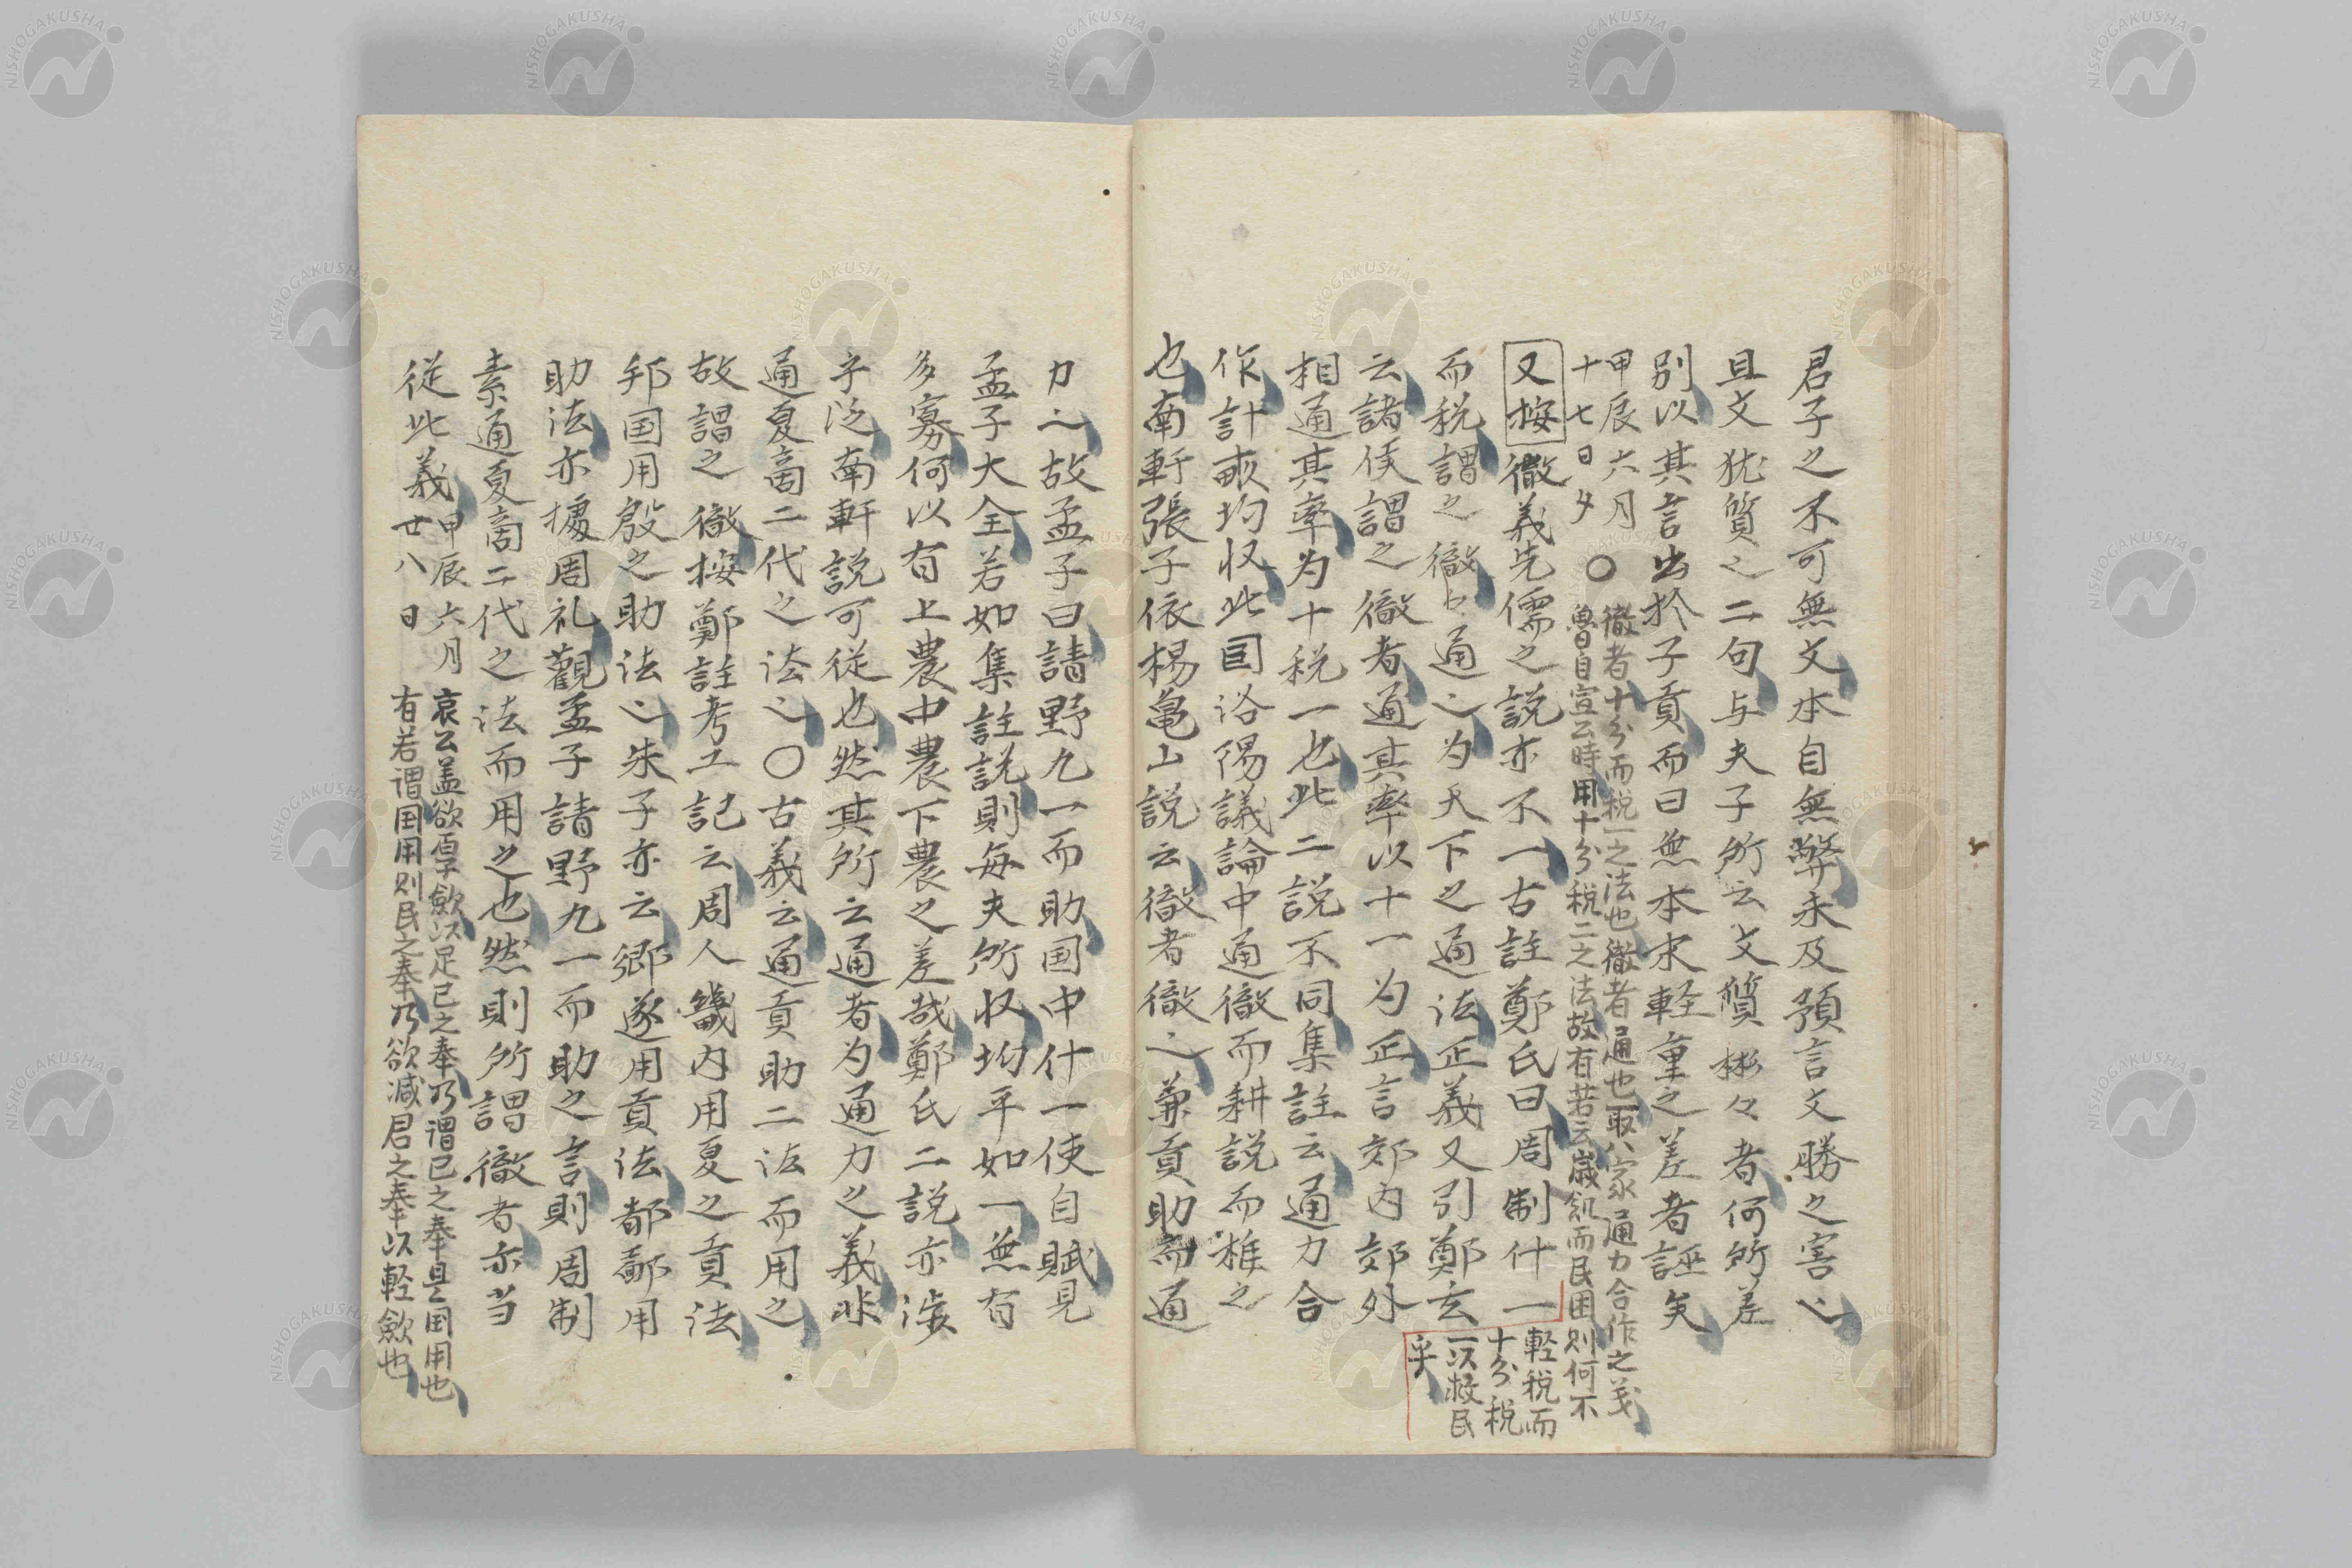 君子之不可無文本自無弊未及預言文勝之害也
且文犹質之二句与夫子所云文質彬々者何所差
別以其言出於子貢而曰無本末軽重之差者誣矣
甲辰六月
十七日夕
○
徹者十分而税一之法也徹者通也取八家通力合作之义
魯自宣公時用十分税二之法故有若云歳飢而民困則何不
軽税而
十分税
一以救民
乎
又按徹義先儒之説亦不一古註鄭氏曰周制什一
而税謂之徹々通也为天下之通法正義又引鄭玄
云諸侯謂之徹者通其率以十一为正言郊内郊外
相通其率为十税一也此二説不同集註云通力合
作計畝均収此因洛陽議論中通徹而耕説而推之
也南軒張子依楊亀山説云徹者徹也兼貢助而通
力也故孟子曰請野九一而助国中什一使自賦見
孟子大全若如集註説則毎夫所収均平如一無有
多寡何以有上農中農下農之差哉鄭氏二説亦渉
字泛南軒説可従也然其所云通者为通力之義非
通夏商二代之法也○古義云通貢助二法而用之
故謂之徹按鄭註考工記云周人畿内用夏之貢法
邦国用殷之助法也朱子亦云郷遂用貢法都鄙用
助法亦據周礼觀孟子請野九一而助之言則周制
素通夏商二代之法而用之也然則所謂徹者亦当
従此義
甲辰六月
廿八日
哀公盖欲厚斂以足己之奉乃謂己之奉是国用也
有若谓国用則民之奉乃欲减君之奉以軽斂也
NISHOGAKUSHA